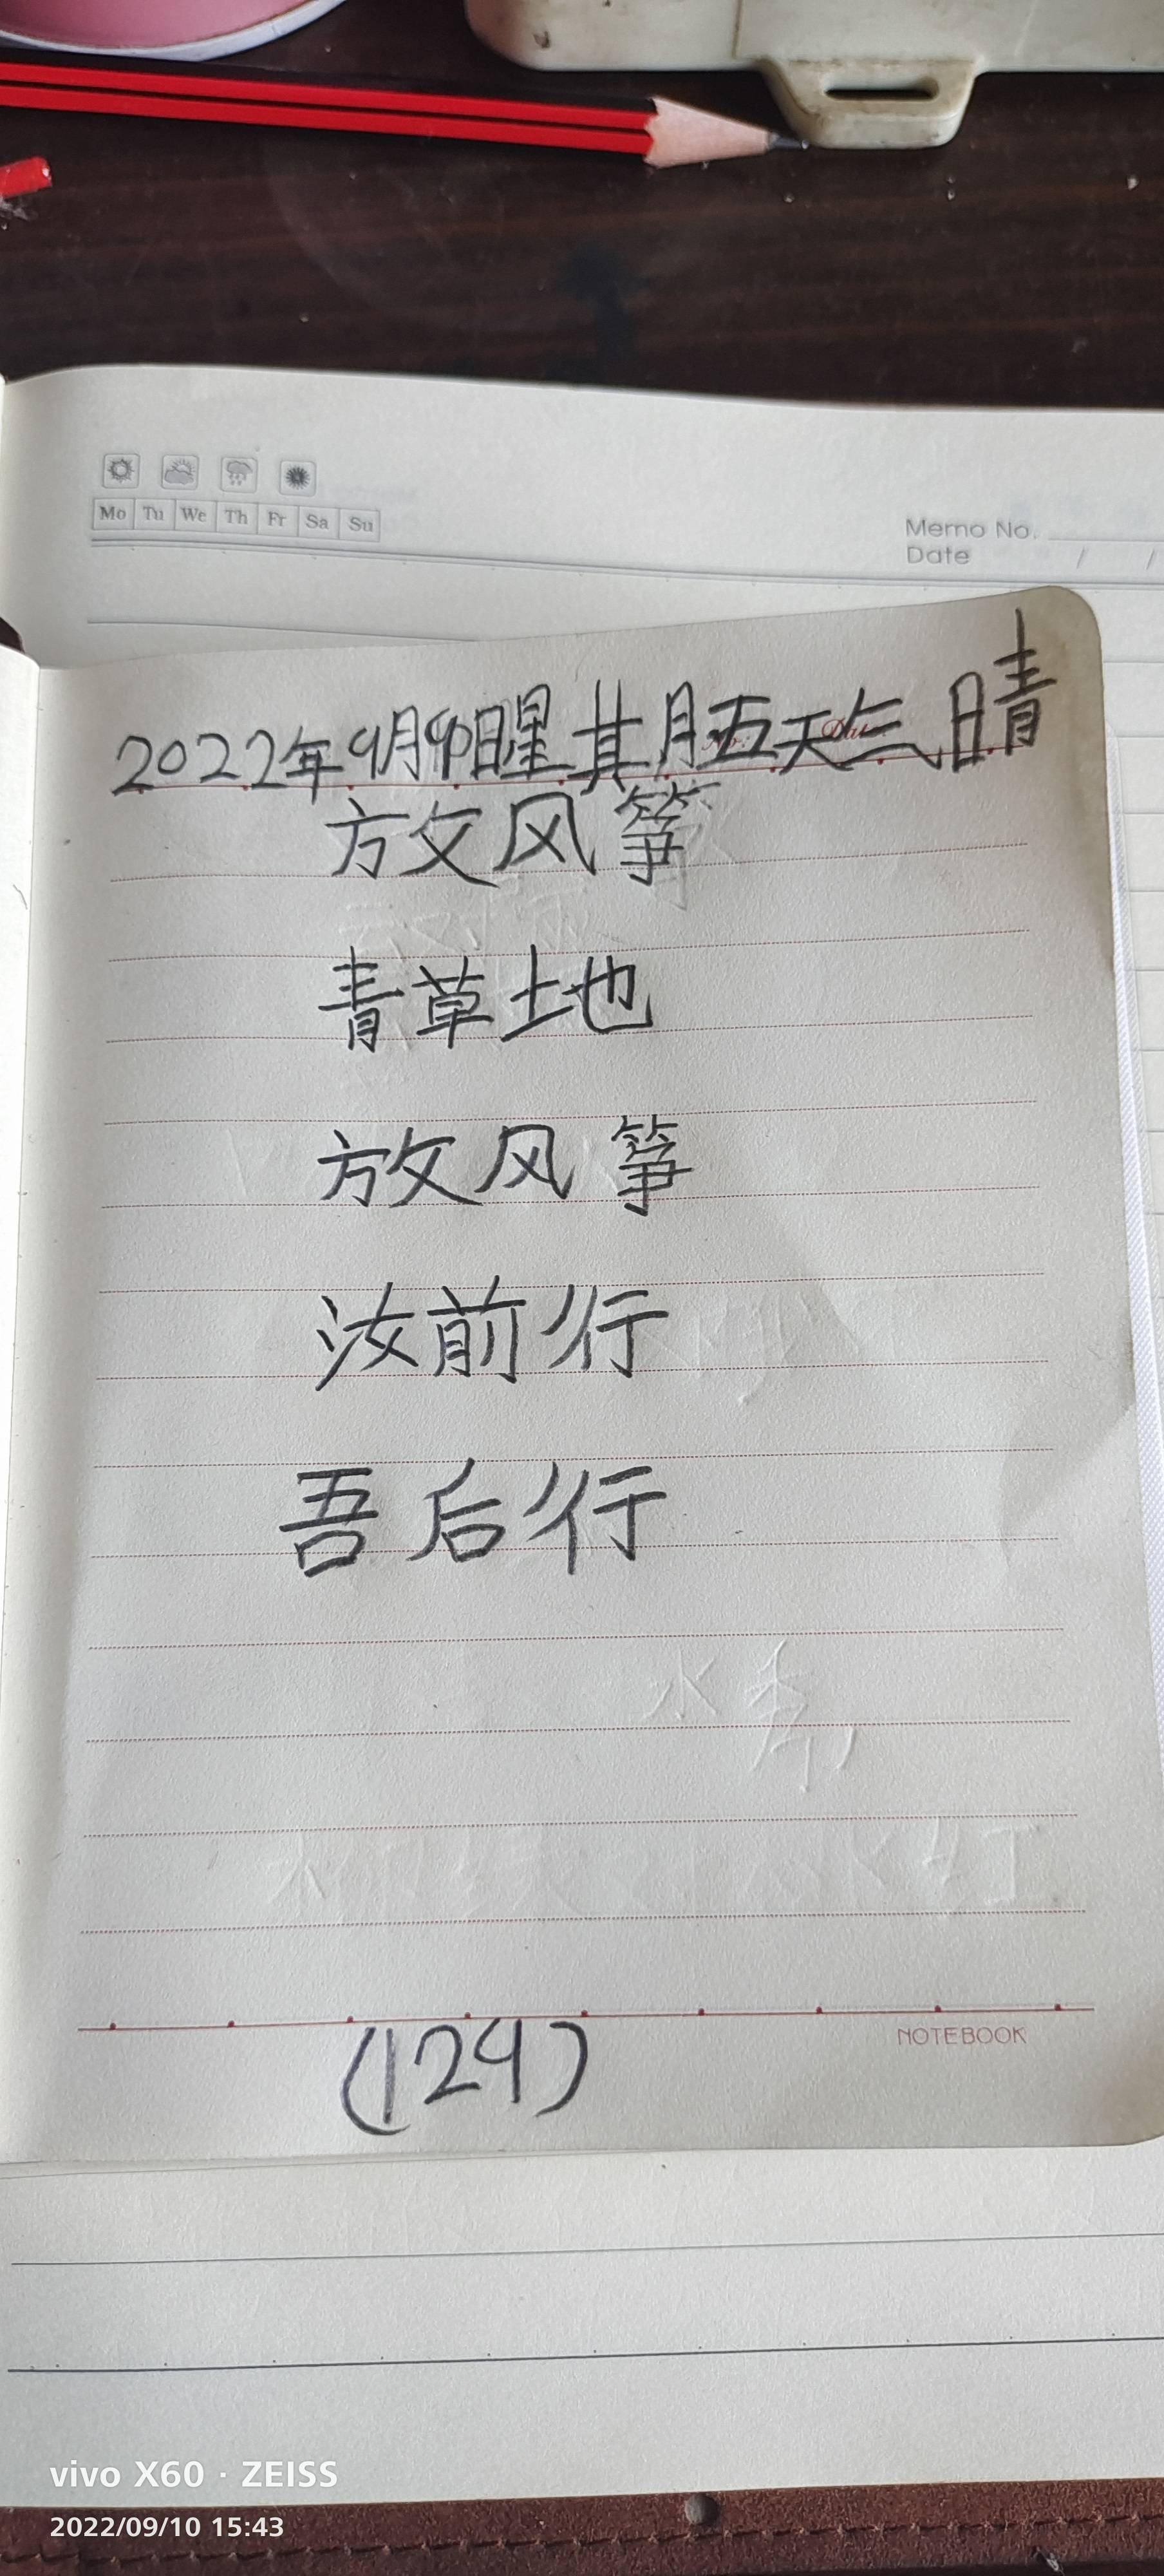 Mo Tu We Th Fr Sa Su
Memo No.
Date / /
2022年9月9日星期五天气晴
放风筝
青草地
放风筝
汝前行
吾后行
NOTEBOOK
(124)
vivo X60 · ZEISS
2022/09/10 15:43